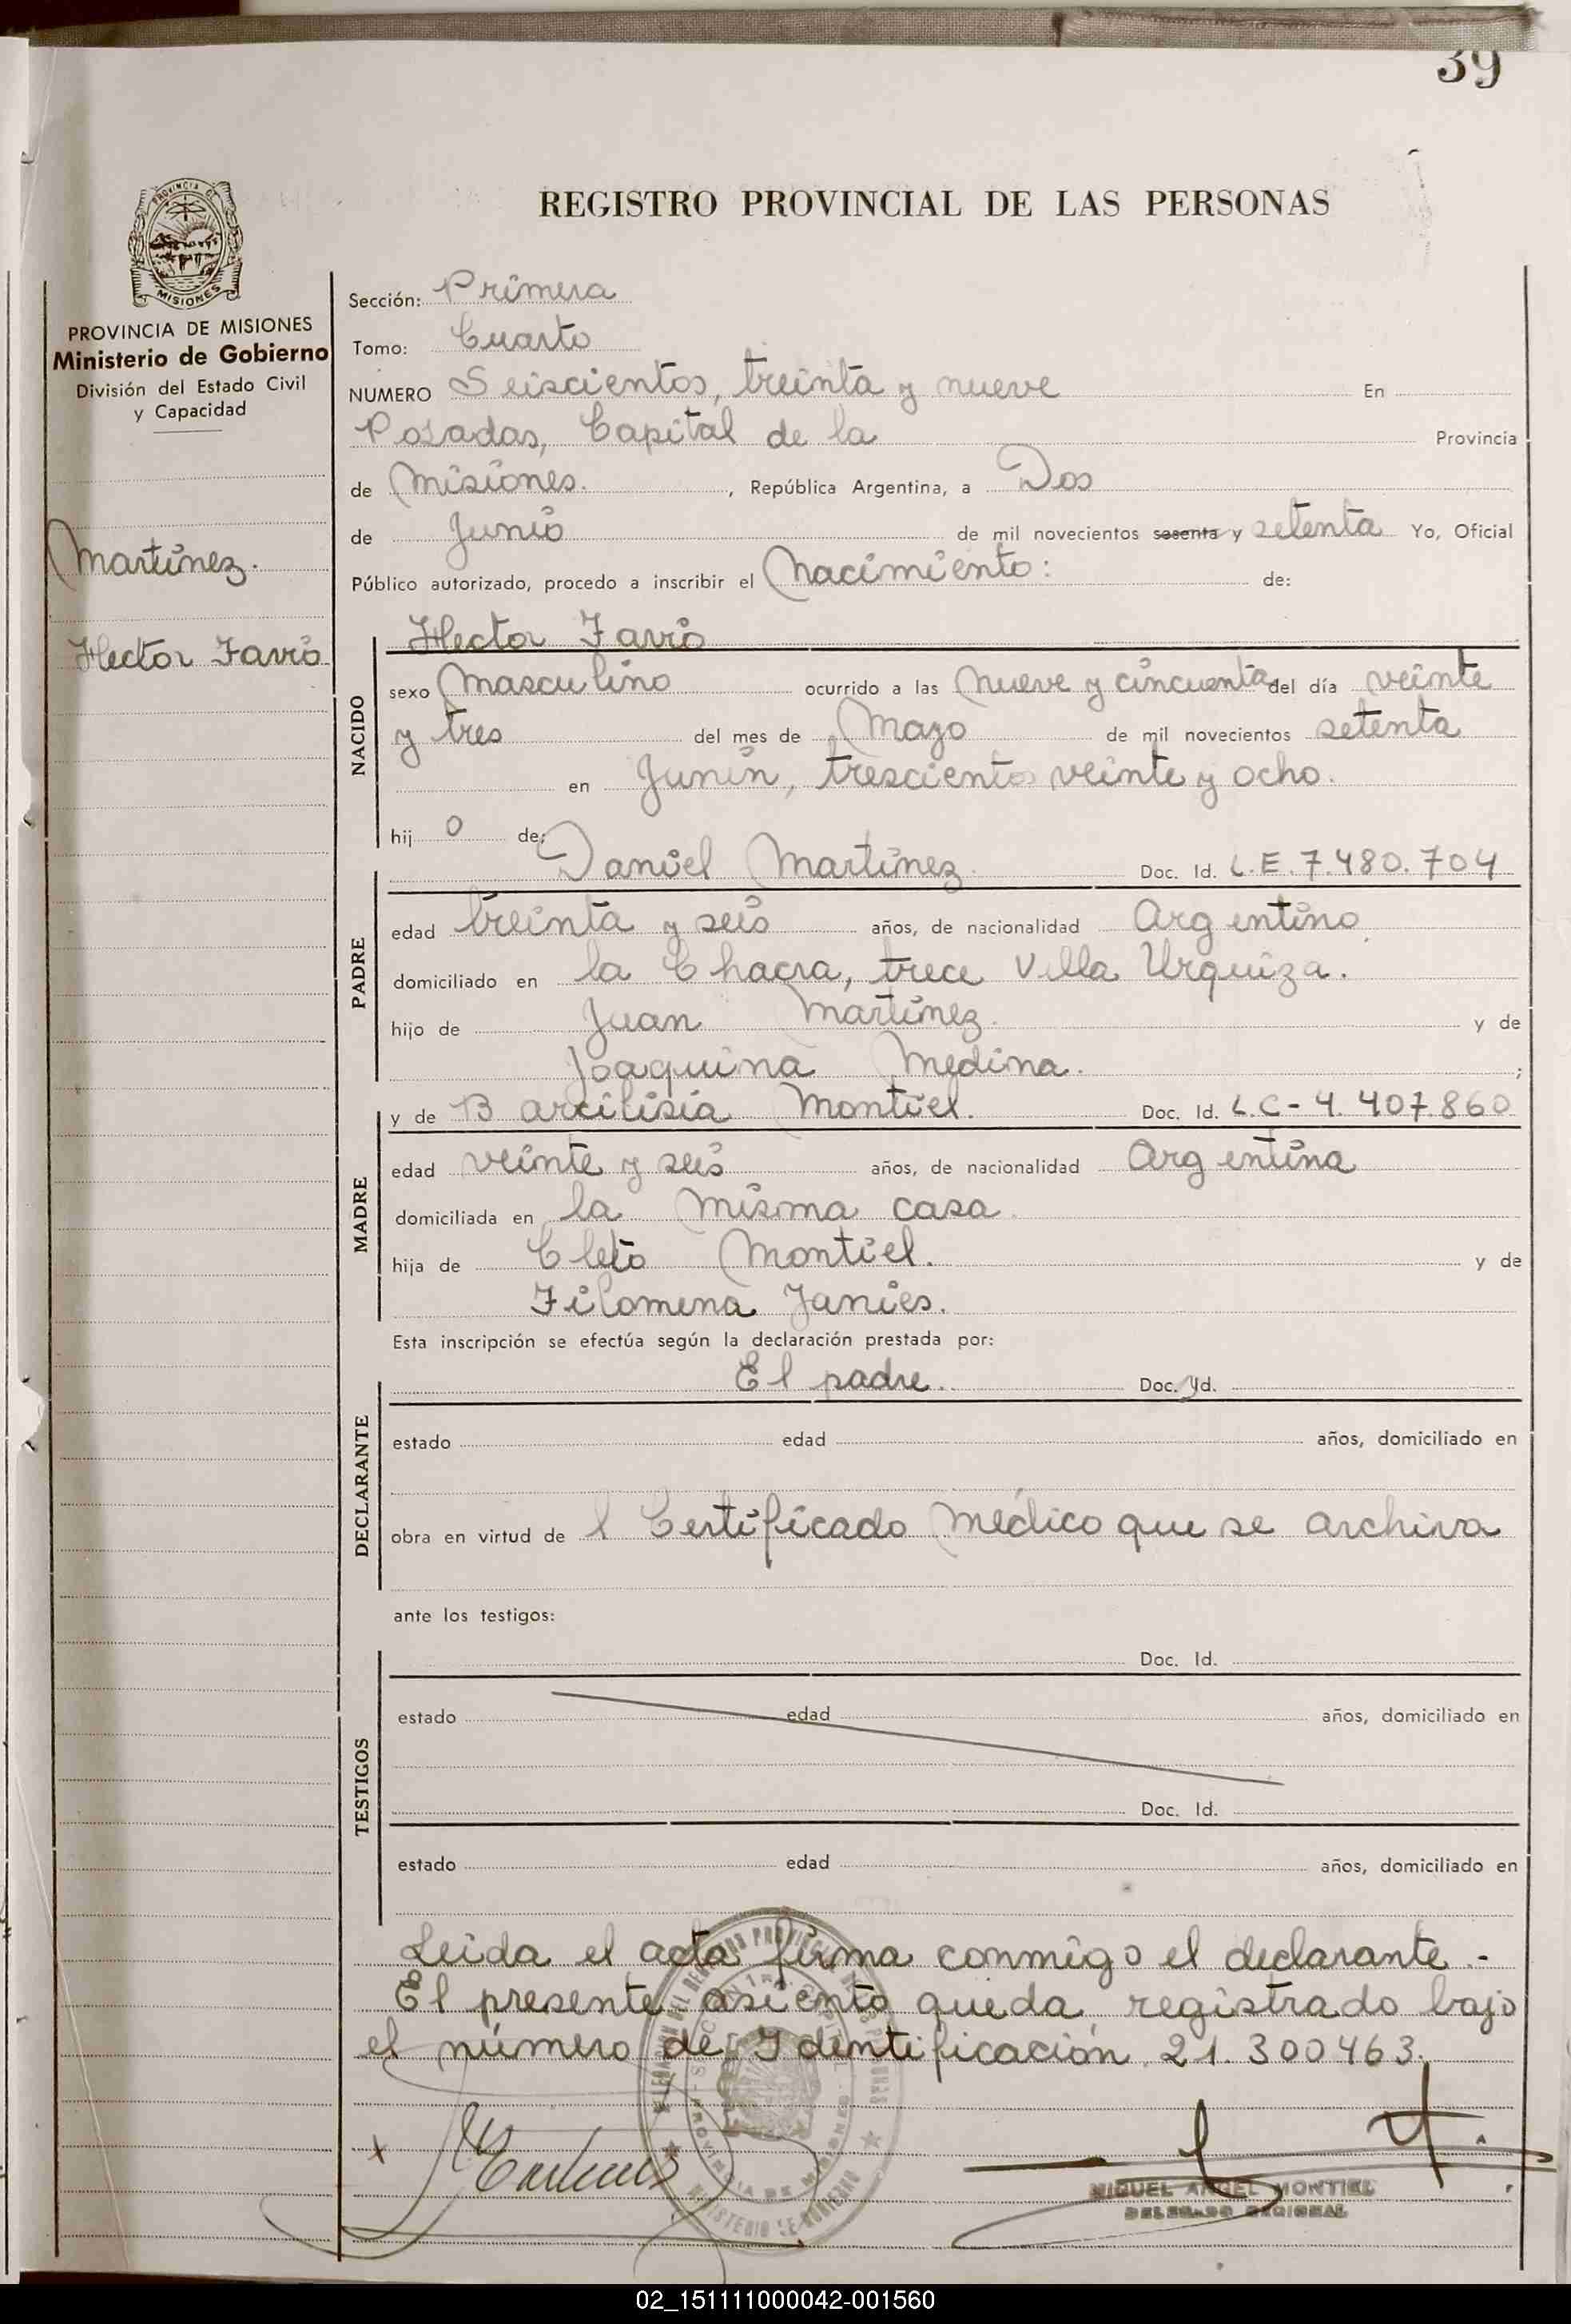 39
REGISTRO PROVINCIAL DE LAS PERSONAS
PROVINCIA DE MISIONES
Ministerio de Gobierno
División del Estado Civil
y Capacidad
Martinez.
Hector Favio
Sección: Primera
Tomo: Cuarto
NUMERO Seiscientos, treinta y nueve En
Posadas, Capital de la Provincia
de Misiones. , República Argentina, a Dos
de Junio de mil novecientos sesenta y setenta Yo, Oficial
Público autorizado, procedo a inscribir el Nacimiento: de:
Hector Favio
NACIDO
sexo Masculino ocurrido a las Nueve y cincuenta del día veinte
y tres del mes de Mayo de mil novecientos setenta
en Junin, trescientos veinte y ocho.
hij o de:
Daniel Martinez Doc. Id. L.E. 7.480.704
PADRE
edad treinta y seis años, de nacionalidad Argentino
domiciliado en la Chacra, trece Villa Urquiza.
hijo de Juan Martinez. y de
Joaquina Medina. ;
y de Barcilisia Montiel. Doc. Id. L.C-4.407.860
MADRE
edad veinte y seis años, de nacionalidad Argentina
domiciliada en la misma casa
hija de Cleto Montiel. y de
Filomena Janies.
Esta inscripción se efectúa según la declaración prestada por:
El padre. Doc. Id.
DECLARANTE
estado edad años, domiciliado en
obra en virtud de l Certificado Médico que se archiva
ante los testigos:
Doc. Id.
TESTIGOS
estado edad años, domiciliado en
Doc. Id.
estado edad años, domiciliado en
Leida el acta firma conmigo el declarante.-
El presente asiento queda registrado bajo
el número de Identificación 21.300463.
MIGUEL ANGEL MONTIEL
DELEGADO REGIONAL
02_151111000042-001560